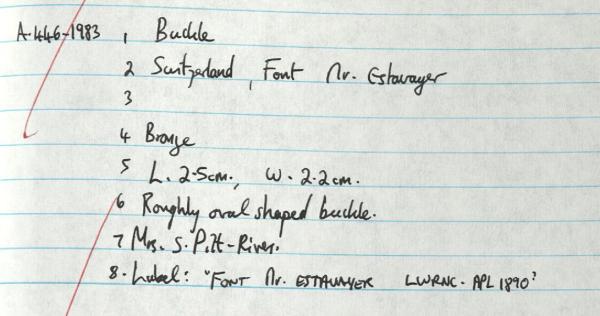 A.446-1983 1 Buckle
2 Switzerland, Font Nr. Estavayer
3
4 Bronze
5 L. 2.5cm., W. 2.2cm.
6 Roughly oval shaped buckle.
7 Mrs. S. Pitt-Rivers.
8. Label: "FONT Nr. ESTAVAYER LWRNC. APL 1890"